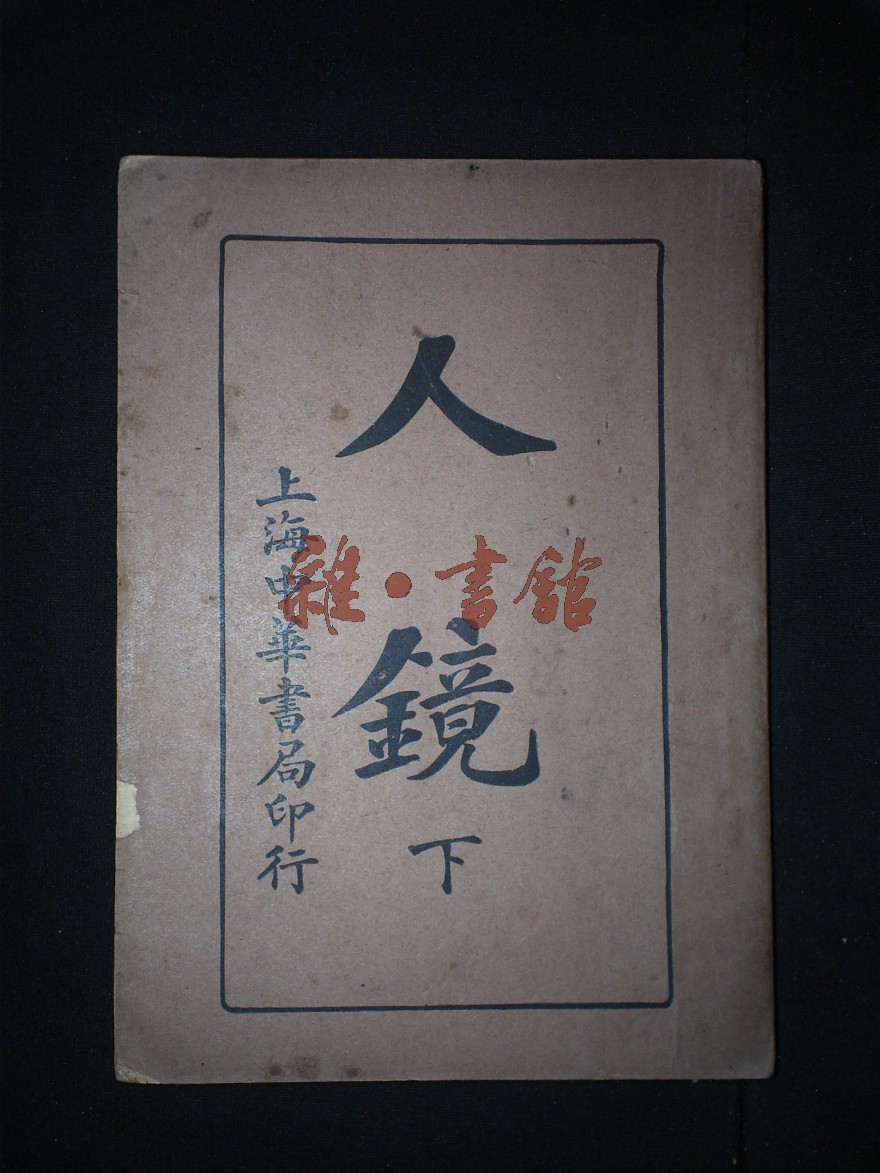 人鏡
下
上海中華書局印行
雜·書館